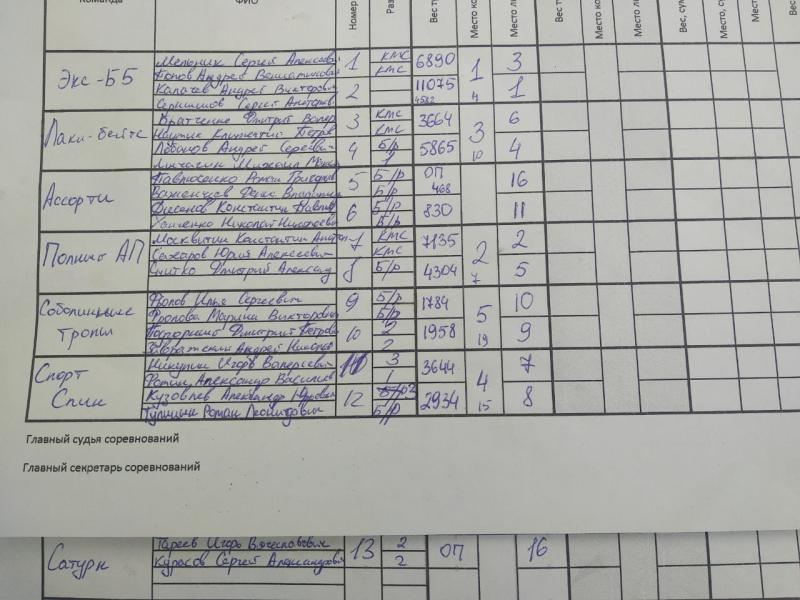 Команда ФИО Номер Раз Вес т Место ко Место ли Вес ту Место ко Место ли Вес т Место ко Место ли Вес, сум Место, су Мест Вес
Экс-Б5 Мельник Сергей Алексеев 1 кмс 6890 1 3
Попов Андрей кмс
Калачев Андрей Викторович 2 11075 4 1
Сергей 4532
Лаки-бейтс Дмитрий Валер 3 кмс 3664 3 6
Климентий Петров кмс
Лобанов Андрей Сергеевич 4 Б/р 5865 10 4
Михаил 1
Ассорти Роман Григорьев 5 Б/р ОП 16
Денис Владимир Б/р 468
Константин Павлов 6 Б/р 830 11
Николай Николаевич Б/р
Полинг АП Москвитин Константин Анатол 7 кмс 7135 2 2
Сажаров Юрий Алексеевич кмс
Снитко Дмитрий Александ 8 Б/р 4304 7 5
Соболиные тропы Фролов Илья Сергеевич 9 Б/р 1784 5 10
Фролова Марина Викторовна Б/р
Дмитрий Петров 10 2 1958 19 9
Андрей Никола 2
Спорт Спин Никулин Игорь Валерьевич 11 3 3644 4 7
Александр Васильев 1
Кузовлев Александр Юрьевич 12 2 2934 15 8
Тупицын Роман Леонидович Б/р
Главный судья соревнований
Главный секретарь соревнований
Сатурн Тареев Игорь Вячеславович 13 2 ОП 16
Курасов Сергей Александрович 2